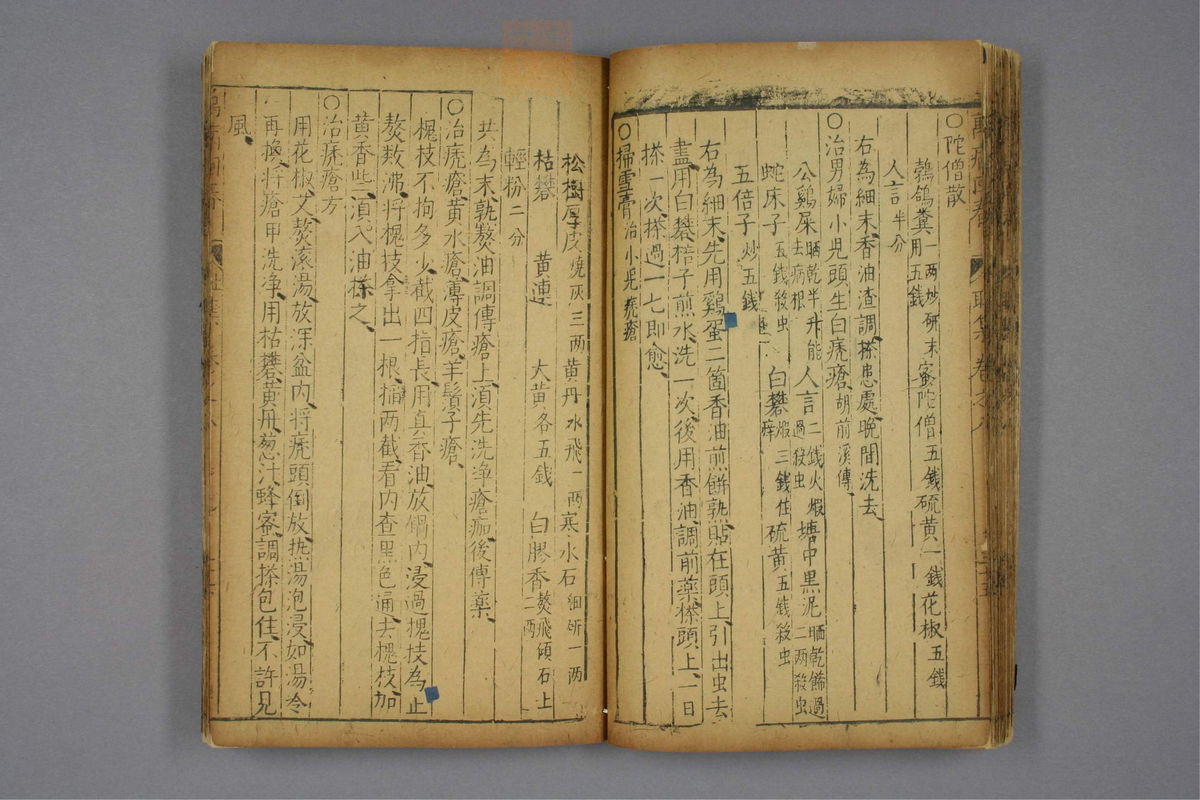 ○陀僧散
鵓鴿糞一兩炒研末用五錢 蜜陀僧五錢 硫黄一錢 花椒五錢
人言半分
右為細末香油渣調搽患處晚間洗去
○治男婦小児頭生白疣瘡胡前溪傳
公鷄屎晒乾半升能去病根 人言二錢火煆過殺虫 塘中黑泥晒乾篩過二兩殺虫
蛇床子五錢殺虫 白礬煆三錢住痒 硫黄五錢殺虫
五倍子炒五錢
右為細末先用鷄蛋二箇香油煎餅熟貼在頭上引出虫去
盡用白礬子煎水洗一次後用香油調前藥搽頭上一日
搽一次搽過一七即愈
○掃雪膏治小児疣瘡
松樹厚皮燒灰三兩 黄丹水飛一兩 寒水石細研一兩
枯礬 黄連 大黄各五錢 白膠香熬飛傾石上二兩
輕粉二分
共為末熟熬油調傅瘡上須先洗净瘡痂後傅藥
○治疣瘡黄水瘡薄皮瘡羊鬚子瘡
槐枝不拘多少截四指長用真香油放鍋内浸過槐枝為止
熬数沸将槐枝拿出一根搯两截看内查黑色通去槐枝加
黄香些須入油搽之
○治疣瘡方
用花椒艾熬滾湯放深盆内将疣頭倒放热湯泡浸如湯冷
再換将瘡甲洗净用枯礬黄丹葱汁蜂蜜調搽包住不許見
風